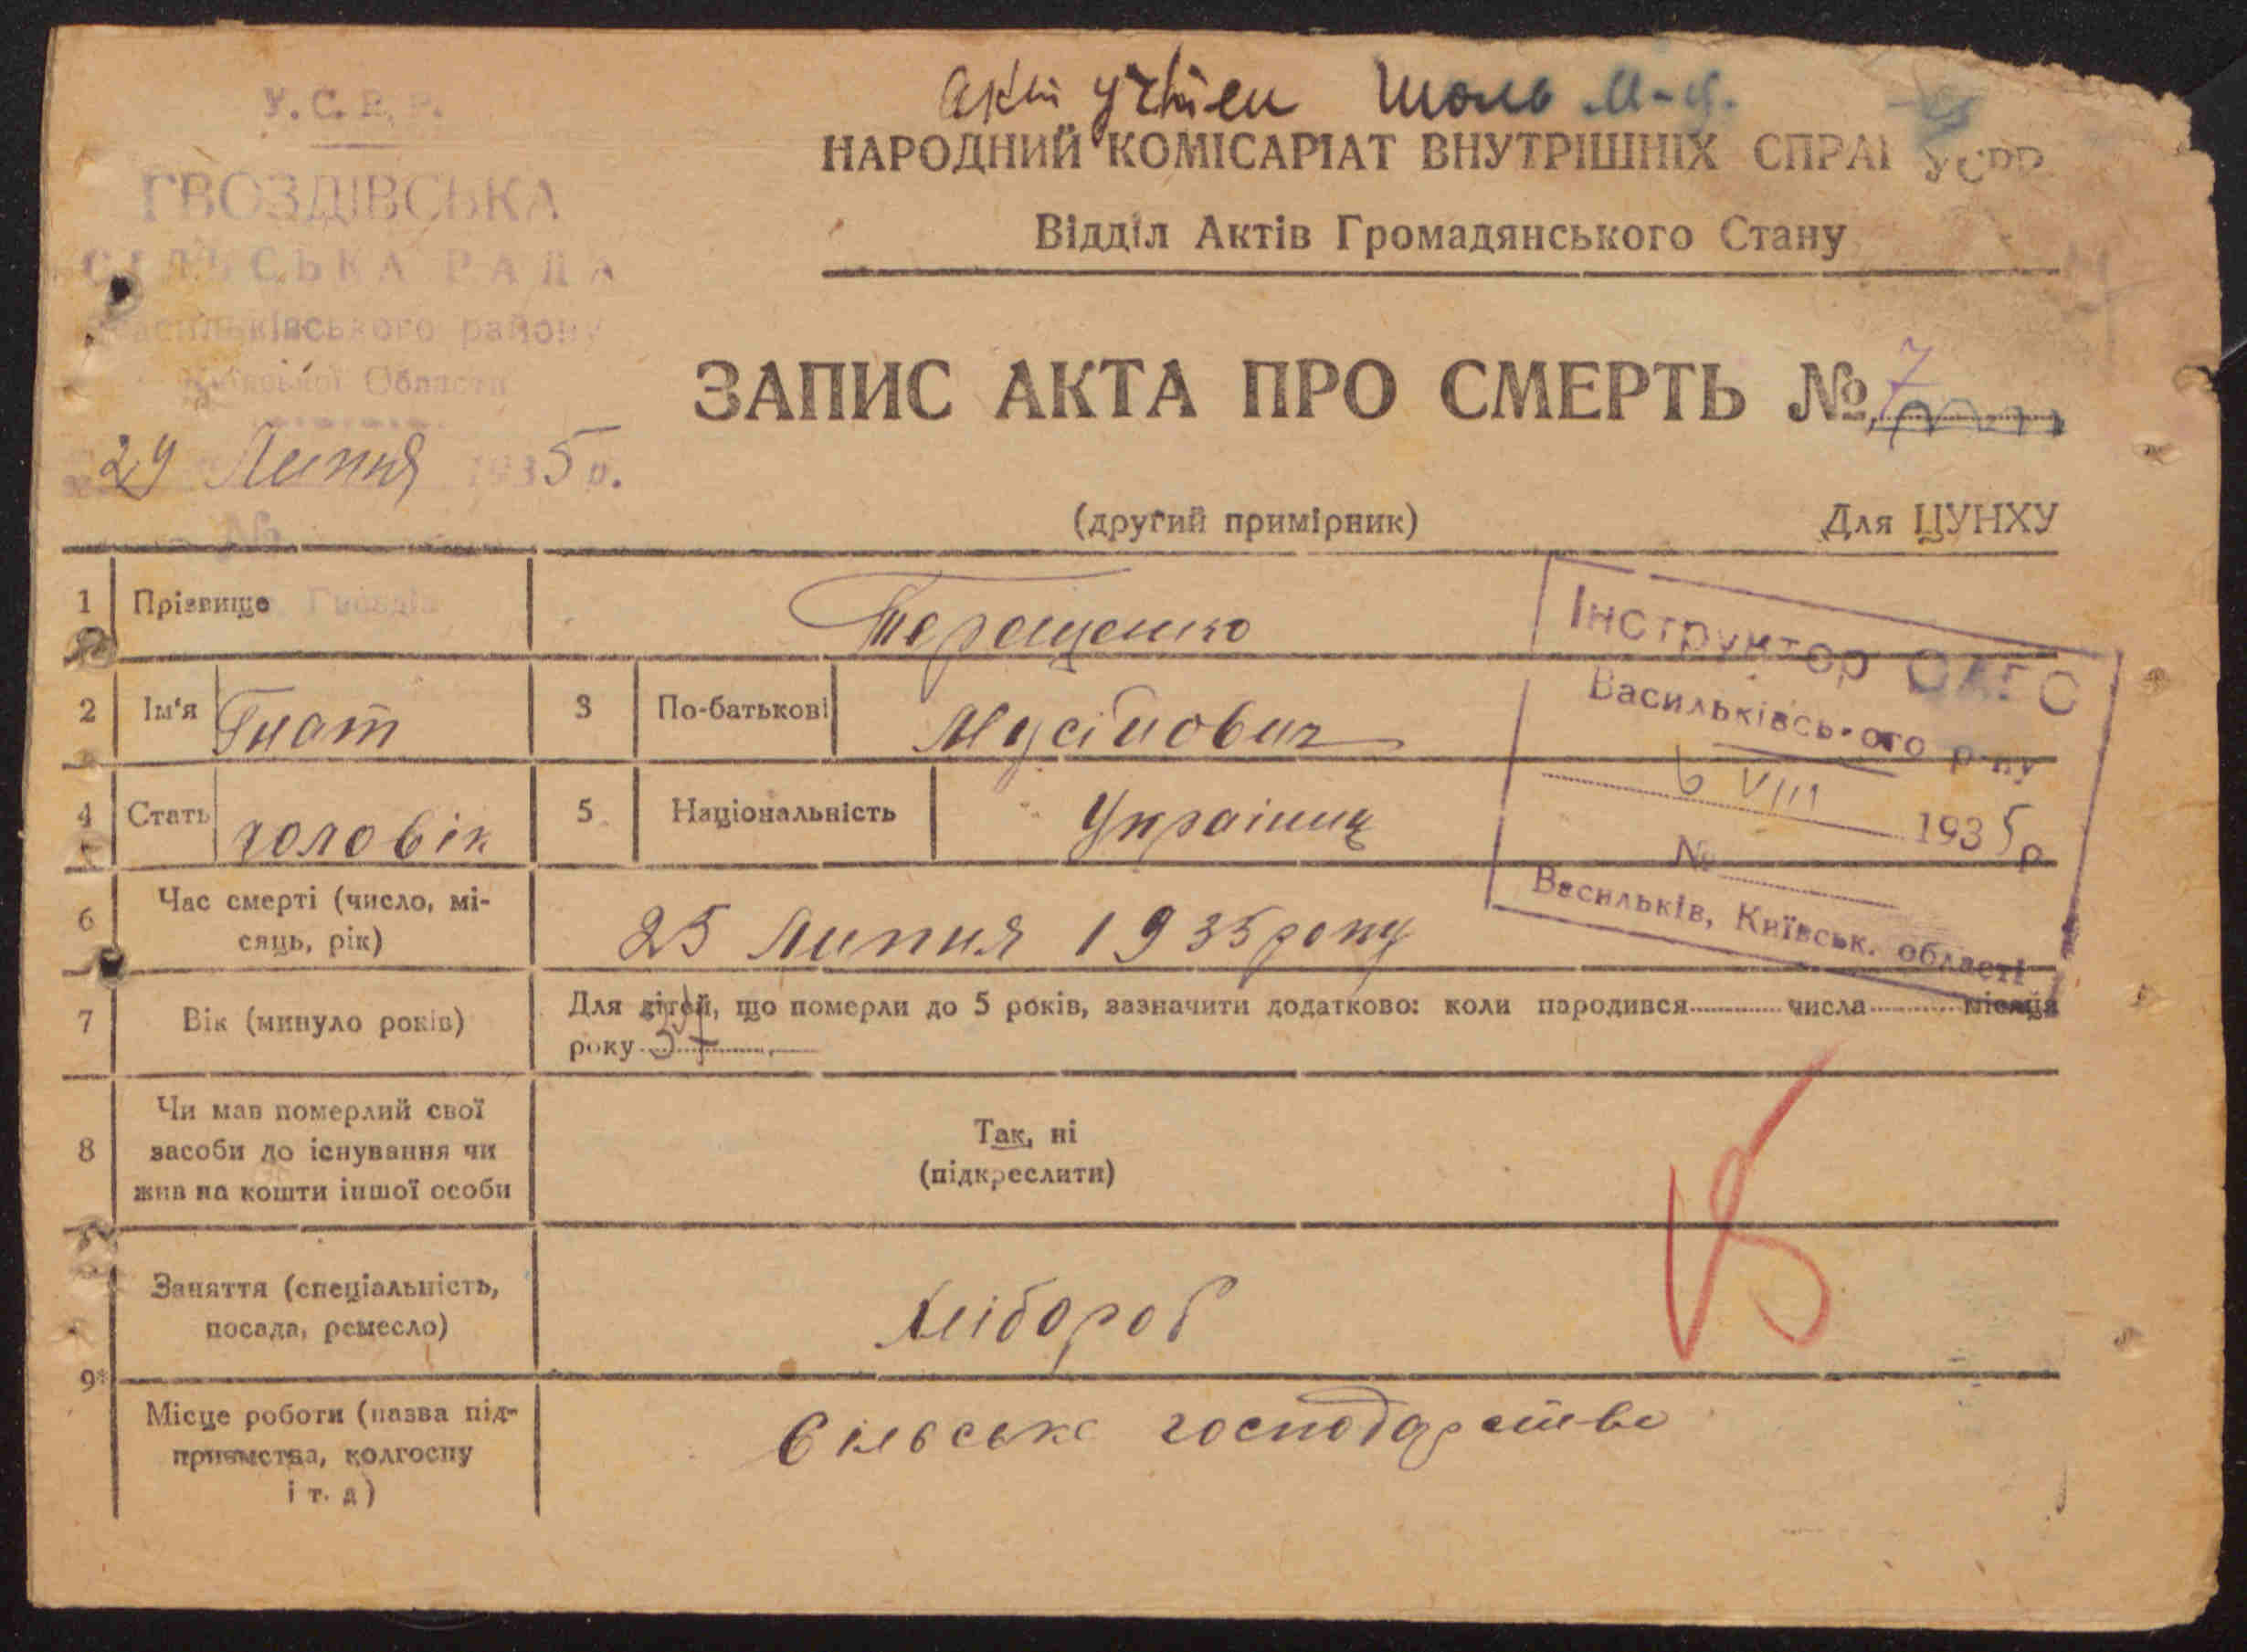 акт учтен Июль м-ц.
У.С.Р.Р.
ГВОЗДІВСЬКА
СІЛЬСЬКА РАДА
Васильківського району
Київської Области
29 Липня 1935 р.
№
Гвоздів
НАРОДНИЙ КОМІСАРІАТ ВНУТРІШНІХ СПРАВ УСРР
Відділ Актів Громадянського Стану
ЗАПИС АКТА ПРО СМЕРТЬ № 7
(другий примірник) Для ЦУНХУ
1 Прізвище Терещенко
2 Ім'я Гнат 3 По-батькові Мусійович
4 Стать чоловік 5 Національність Українец
Інструктор ОАГС
Васильківського р-ну
6 VIII 1935 р
№
Васильків, Київськ. області
6 Час смерті (число, мі-
сяць, рік) 25 Липня 1935 року
7 Вік (минуло років) Для дітей, що померли до 5 років, зазначити додатково: коли народився числа місяця
року
8 Чи мав померлий свої
засоби до існування чи
жив на кошти іншої особи
Так, ні
(підкреслити)
Заняття (спеціальність,
посада, ремесло) Хлібороб
9*
Місце роботи (назва під-
приємства, колгоспу
і т. д) Сільське господарство